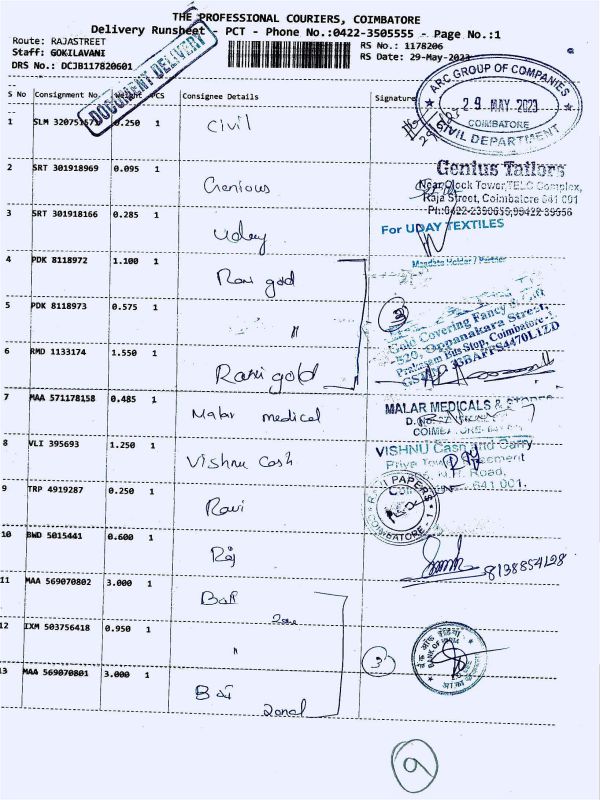 THE PROFESSIONAL COURIERS, COIMBATORE
Delivery Runsheet - PCT - Phone No.:0422-3505555 - Page No.:1
Route: RAJASTREET
RS No.: 1178206
Staff: GOKILAVANI
RS Date: 29-May-2023
DRS No.: DCJB117820601
DOCUMENT DELIVERY
S No Consignment No. Weight PCS Consignee Details Signature
ARC GROUP OF COMPANIES
29 MAY 2023
COIMBATORE
CIVIL DEPARTMENT
1 SLM 0.250 1 Civil
2 SRT 301918969 0.095 1 Genious
Genius Tailors
Near Clock Tower, TELC Complex,
Raja Street, Coimbatore 641 001
3 SRT 301918166 0.285 1 Uday
For UDAY TEXTILES
4 PDK 8118972 1.100 1 Ravi gold
5 PDK 8118973 0.575 1 "
3
Gold Covering Fancy
520, Oppanakara Street,
Prakasam Bus Stop, Coimbatore-1
6 RMD 1133174 1.550 1 Ravi gold
7 MAA 571178158 0.485 1 Malar medical
MALAR MEDICALS & STORES
8 VLI 395693 1.250 1 Vishnu Cash
VISHNU Cash and Carry
Road,
641 001.
9 TRP 4919287 0.250 1 Ravi
RAVI PAPERS
COIMBATORE - 1
10 BWD 5015441 0.600 1 Raj
8138854128
11 MAA 569070802 3.000 1 BOI
Zone
12 IXM 503756418 0.950 1 "
3
BANK OF INDIA
13 MAA 569070801 3.000 1 BOI
Zonal
9